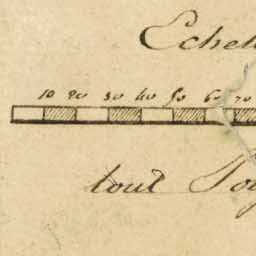 Echel
10 20 30 40 50 60 70
tout